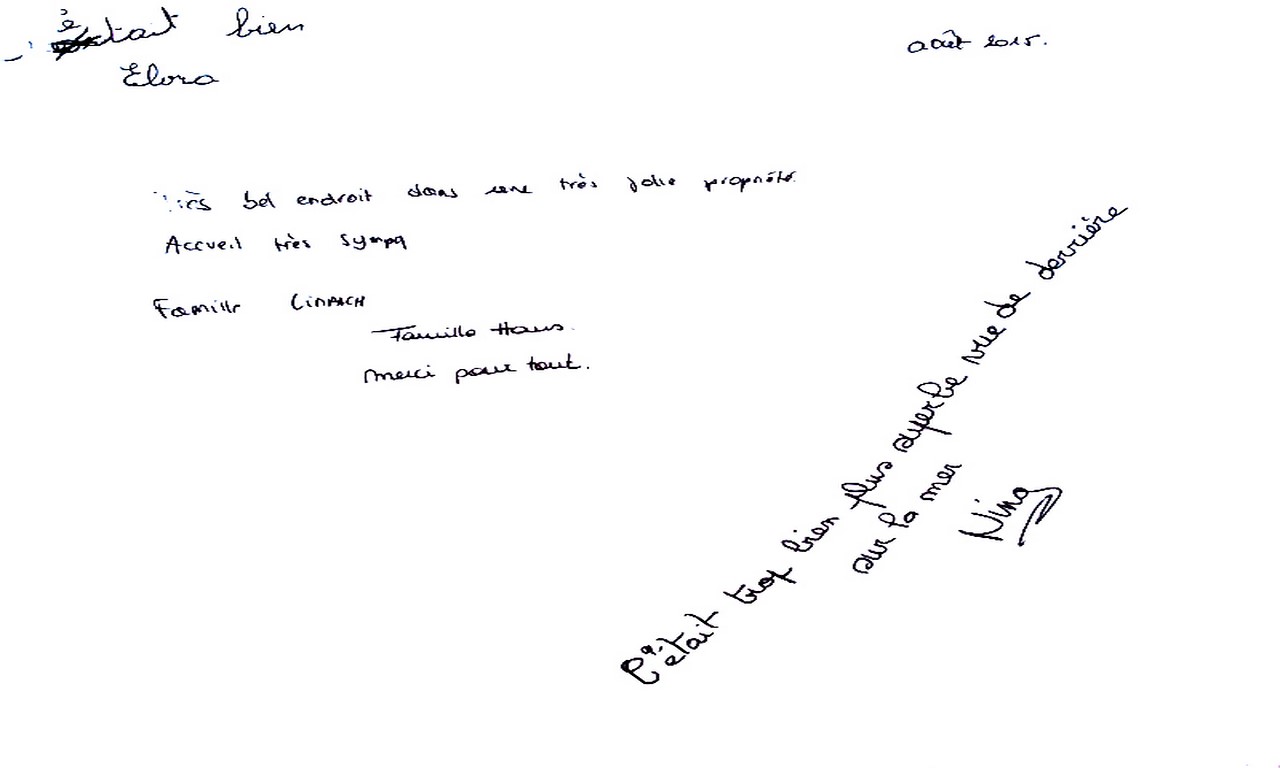 était bien
Elora
août 2015.
Très bel endroit dans une très jolie propriété.
Accueil très sympa
Famille
Famille Haus.
Merci pour tout.
C'était trop bien plus superbe vue de derrière
sur la mer
Nina